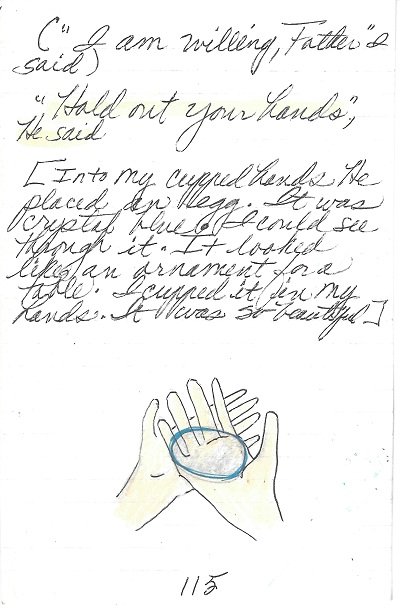 ("I am willing, Father" I
said)
"Hold out your hands",
He said
[Into my cupped hands He
placed an egg. It was
crystal blue & I could see
through it. It looked
like an ornament for a
table. I cupped it in my
hands. It was so beautiful]
115